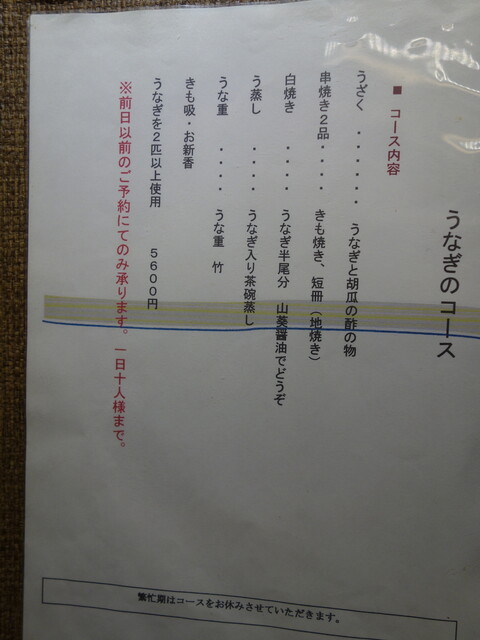 うなぎのコース
■ コース内容
うざく ・・・・・・ うなぎと胡瓜の酢の物
串焼き２品・・・・ きも焼き、短冊（地焼き）
白焼き ・・・・ うなぎ半尾分 山葵醤油でどうぞ
う蒸し ・・・・ うなぎ入り茶碗蒸し
うな重 ・・・・ うな重 竹
きも吸・お新香
うなぎを２匹以上使用 ５６００円
※前日以前のご予約にてのみ承ります。一日十人様まで。
繁忙期はコースをお休みさせていただきます。